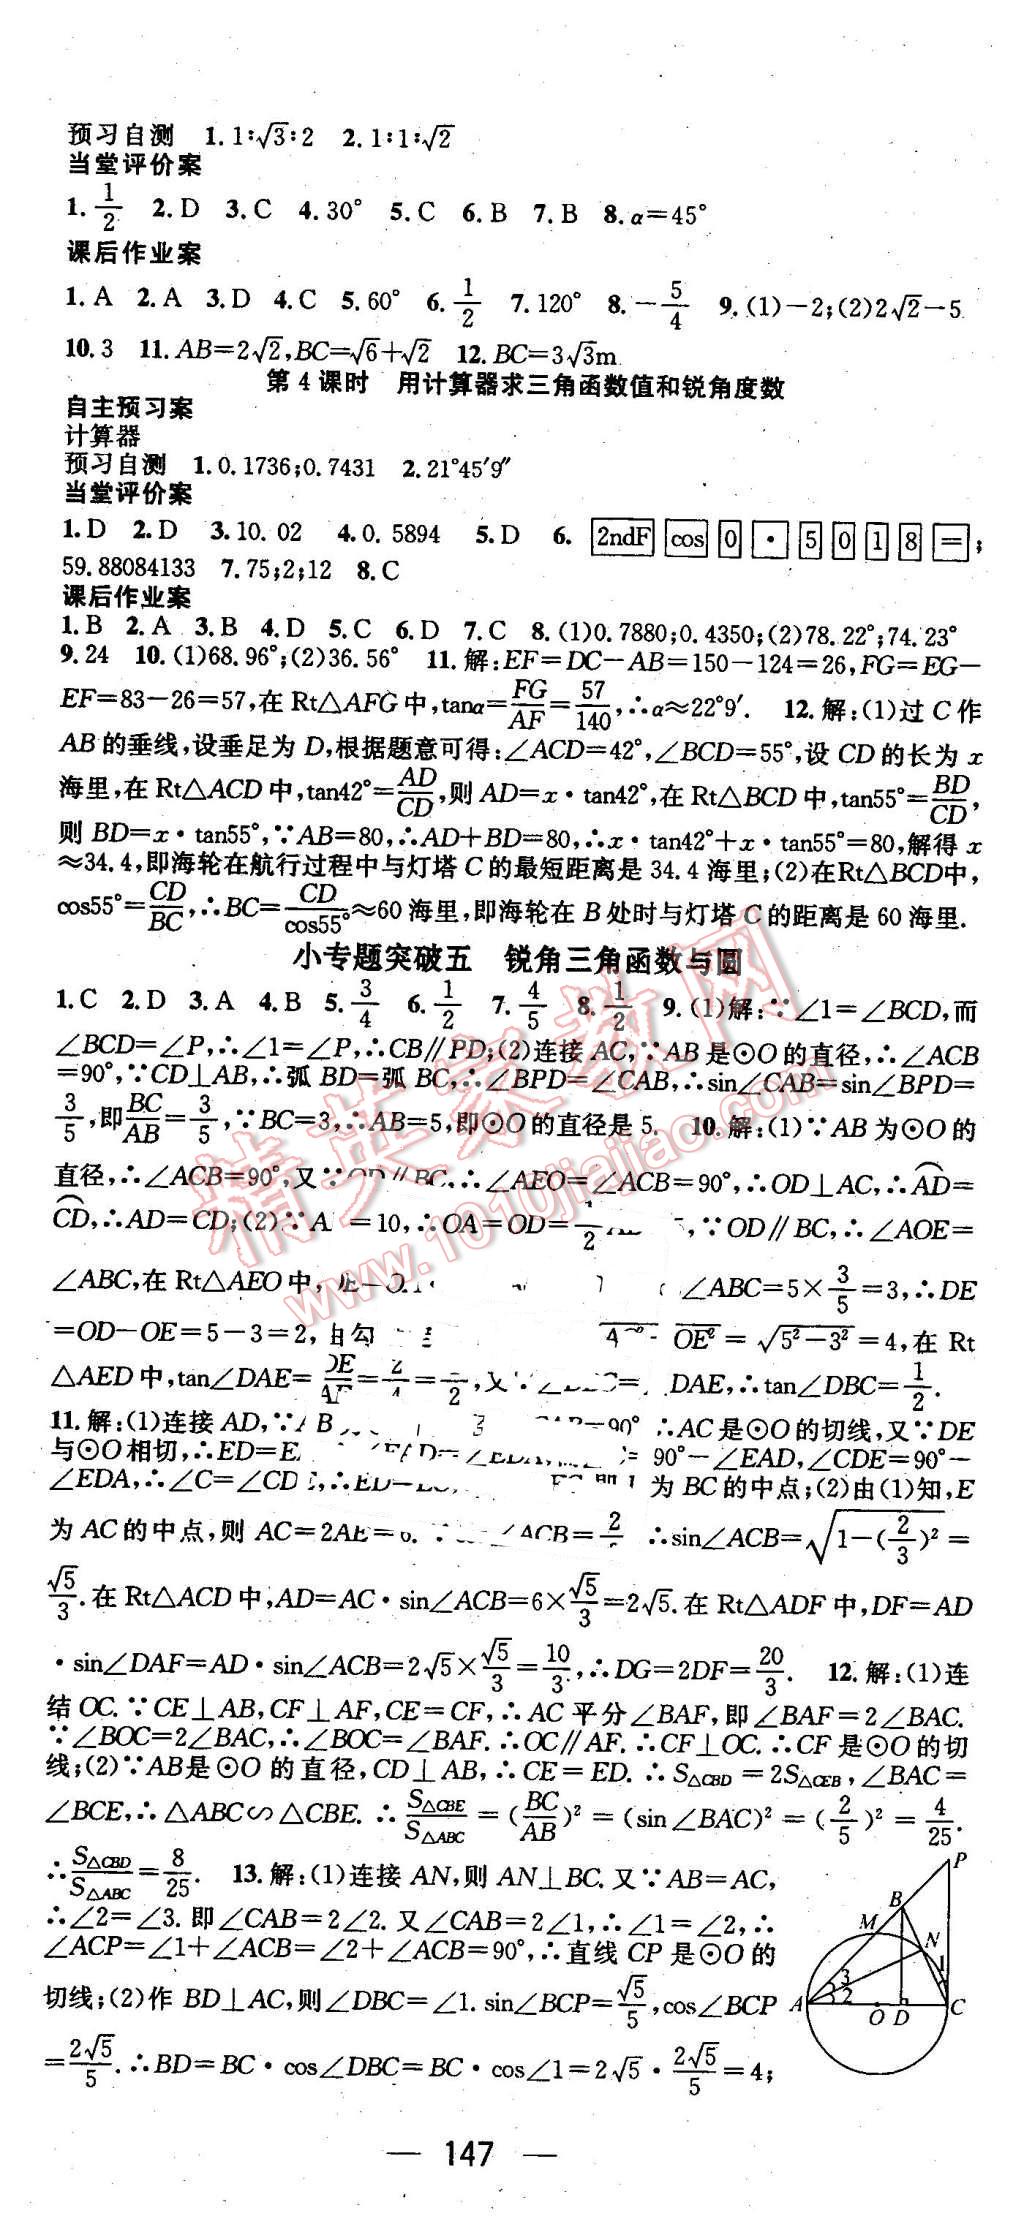 预习自测 1. 1∶√3∶2 2. 1∶1∶√2
当堂评价案
1. 1/2 2. D 3. C 4. 30° 5. C 6. B 7. B 8. α=45°
课后作业案
1. A 2. A 3. D 4. C 5. 60° 6. 1/2 7. 120° 8. -5/4 9. (1)-2;(2)2√2-5
10. 3 11. AB=2√2,BC=√6+√2 12. BC=3√3m
第 4 课时 用计算器求三角函数值和锐角度数
自主预习案
计算器
预习自测 1. 0.1736;0.7431 2. 21°45′9″
当堂评价案
1. D 2. D 3. 10.02 4. 0.5894 5. D 6. 2ndF cos 0 · 5 0 1 8 = ;
59.88084133 7. 75;2;12 8. C
课后作业案
1. B 2. A 3. B 4. D 5. C 6. D 7. C 8. (1)0.7880;0.4350;(2)78.22°;74.23°
9. 24 10. (1)68.96°;(2)36.56° 11. 解:EF=DC-AB=150-124=26,FG=EG-
EF=83-26=57,在 Rt△AFG 中,tanα=FG/AF=57/140,∴α≈22°9′. 12. 解:(1)过 C 作
AB 的垂线,设垂足为 D,根据题意可得:∠ACD=42°,∠BCD=55°,设 CD 的长为 x
海里,在 Rt△ACD 中,tan42°=AD/CD,则 AD=x·tan42°,在 Rt△BCD 中,tan55°=BD/CD,
则 BD=x·tan55°,∵AB=80,∴AD+BD=80,∴x·tan42°+x·tan55°=80,解得 x
≈34.4,即海轮在航行过程中与灯塔 C 的最短距离是 34.4 海里;(2)在Rt△BCD中,
cos55°=CD/BC,∴BC=CD/cos55°≈60 海里,即海轮在 B 处时与灯塔 C 的距离是 60 海里.
小专题突破五 锐角三角函数与圆
1. C 2. D 3. A 4. B 5. 3/4 6. 1/2 7. 4/5 8. 1/2 9. (1)解:∵∠1=∠BCD,而
∠BCD=∠P,∴∠1=∠P,∴CB∥PD;(2)连接 AC,∵AB 是⊙O 的直径,∴∠ACB
=90°,∵CD⊥AB,∴弧 BD=弧 BC,∴∠BPD=∠CAB,∴sin∠CAB=sin∠BPD=
3/5,即BC/AB=3/5,∵BC=3,∴AB=5,即⊙O 的直径是 5. 10. 解:(1)∵AB 为⊙O 的
直径,∴∠ACB=90°,又∵OD∥BC,∴∠AEO=∠ACB=90°,∴OD⊥AC,∴AD⌒=
CD⌒,∴AD=CD;(2)∵A =10,∴OA=OD=1/2 ,∵OD∥BC,∴∠AOE=
∠ABC,在 Rt△AEO 中, ∠ABC=5×3/5=3,∴DE
=OD-OE=5-3=2,由勾 OE²=√(5²-3²)=4,在 Rt
△AED 中,tan∠DAE=DE/AE=2/4= /2,又∵∠ C= DAE,∴tan∠DBC=1/2.
11. 解:(1)连接 AD,∵AB =90° ∴AC 是⊙O 的切线,又∵DE
与⊙O 相切,∴ED=E ∠EAD=∠EDA, = 90°-∠EAD,∠CDE=90°-
∠EDA,∴∠C=∠CD ,∴ED=EC, 为 BC 的中点;(2)由(1)知,E
为 AC 的中点,则 AC=2AE=6. ∠ACB=2/ ∴sin∠ACB=√(1-(2/3)²)=
√5/3.在 Rt△ACD 中,AD=AC·sin∠ACB=6×√5/3=2√5.在 Rt△ADF 中,DF=AD
·sin∠DAF=AD·sin∠ACB=2√5×√5/3=10/3,∴DG=2DF=20/3. 12. 解:(1)连
结 OC.∵CE⊥AB,CF⊥AF,CE=CF,∴AC 平分∠BAF,即∠BAF=2∠BAC.
∵∠BOC=2∠BAC,∴∠BOC=∠BAF.∴OC∥AF.∴CF⊥OC.∴CF 是⊙O 的切
线;(2)∵AB是⊙O 的直径,CD⊥AB,∴CE=ED.∴S△CBD=2S△CEB,∠BAC=
∠BCE,∴△ABC∽△CBE.∴S△CBE/S△ABC=(BC/AB)²=(sin∠BAC)²=(2/5)²=4/25.
∴S△CBD/S△ABC=8/25. 13. 解:(1)连接 AN,则 AN⊥BC.又∵AB=AC,
∴∠2=∠3.即∠CAB=2∠2.又∠CAB=2∠1,∴∠1=∠2,∴
∠ACP=∠1+∠ACB=∠2+∠ACB=90°,∴直线 CP 是⊙O 的
切线;(2)作 BD⊥AC,则∠DBC=∠1.sin∠BCP=√5/5,cos∠BCP
=2√5/5.∴BD=BC·cos∠DBC=BC·cos∠1=2√5·2√5/5=4;
P
B
M
N
1
3
2
A
O D
C
精英家教网
www.1010jiajiao.com
— 147 —